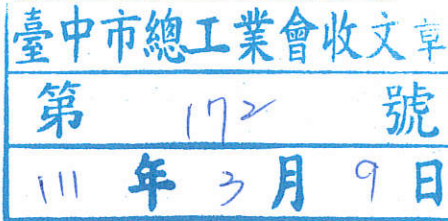 臺中市總工業會收文章
第 172 號
111年3月9日